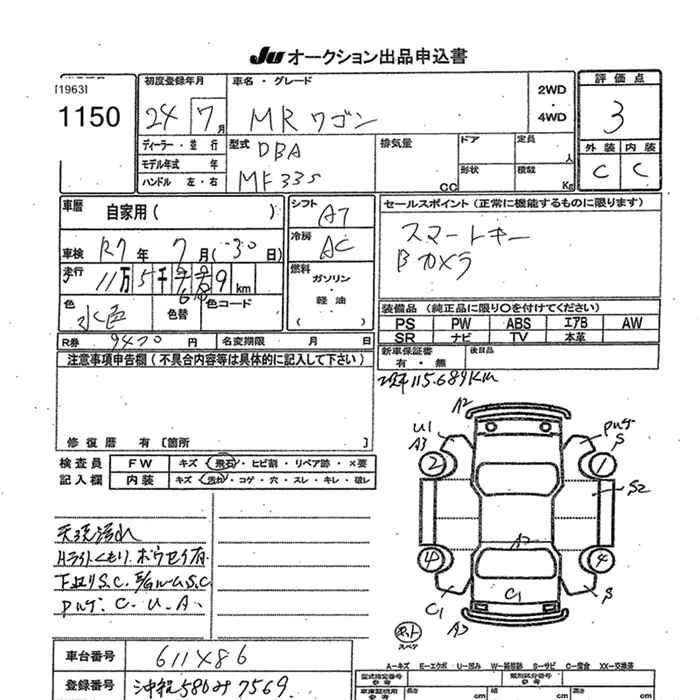 JU オークション出品申込書
[1963]
1150
初度登録年月
24 7月
車名・グレード
MRワゴン
2WD
・
4WD
評価点
3
外装 内装
C C
ディーラー・並行
モデル年式 年
ハンドル 左・右
型式
DBA
MF33S
排気量
CC
ドア
形状
定員
人
積載
Kg
車歴
自家用( )
シフト
AT
車検
R7年 7月(30日)
冷房
AC
走行
11万5千 9km
燃料
ガソリン
・
軽油
色
水色
色替
色コード
R券 9420円
名変期限 月 日
セールスポイント(正常に機能するものに限ります)
スマートキー
Bカメラ
装備品(純正品に限り○を付けてください)
PS PW ABS エアB AW
SR ナビ TV 本革
新車保証書
有・無
後日品
115.689Km
注意事項申告欄(不具合内容等は具体的に記入して下さい)
修復歴 有[箇所 ]
検査員
記入欄
FW キズ・飛石・ヒビ割・リペア跡・×要
内装 キズ・汚れ・コゲ・穴・スレ・キレ・破レ
天張汚れ
Hライトくもり.
下廻りS.C. E/GルームS.C
C.U.A.
A2
U1
A3
S
2
1
S2
4
C1
C1
A3
スペア
A-キズ E-エクボ U-凹み W-補修跡 S-サビ C-腐食 XX-交換済
車台番号 611486
登録番号 580 7569